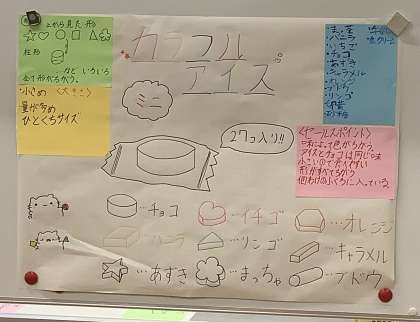 上から見た形
柱形
など いろいろ
小さめ 〈大きさ〉
量が多め
ひとくちサイズ
カラフル
アイズ
27コ入り!!
まっ茶
バニラ
いちご
チョコ
あずき
キャラメル
オレンジ
ブドウ
リンゴ
砂糖
〈セールスポイント〉
味によって色がちがう。
アイスとチョコは同じ味
小さいので食べやすい
形がすべてちがう
個わけのふくろに入っている。
…チョコ
…イチゴ
…オレンジ
…バニラ
…リンゴ
…キャラメル
…あずき
…まっちゃ
…ブドウ